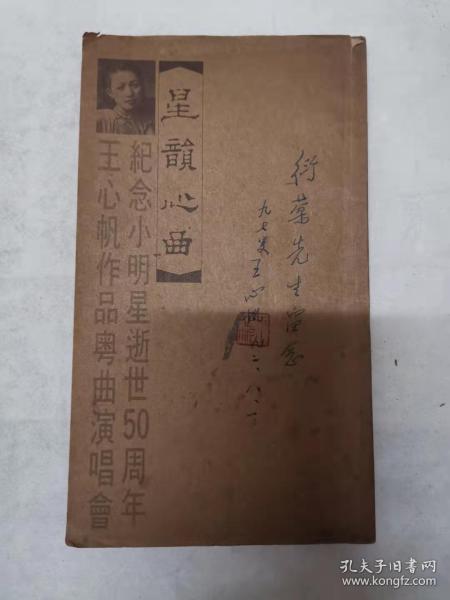 衍先生留念
九七叟王心帆
二、八、一
星韻心曲
紀念小明星逝世50周年
王心帆作品粵曲演唱會
孔夫子旧书网
www.kongfz.com